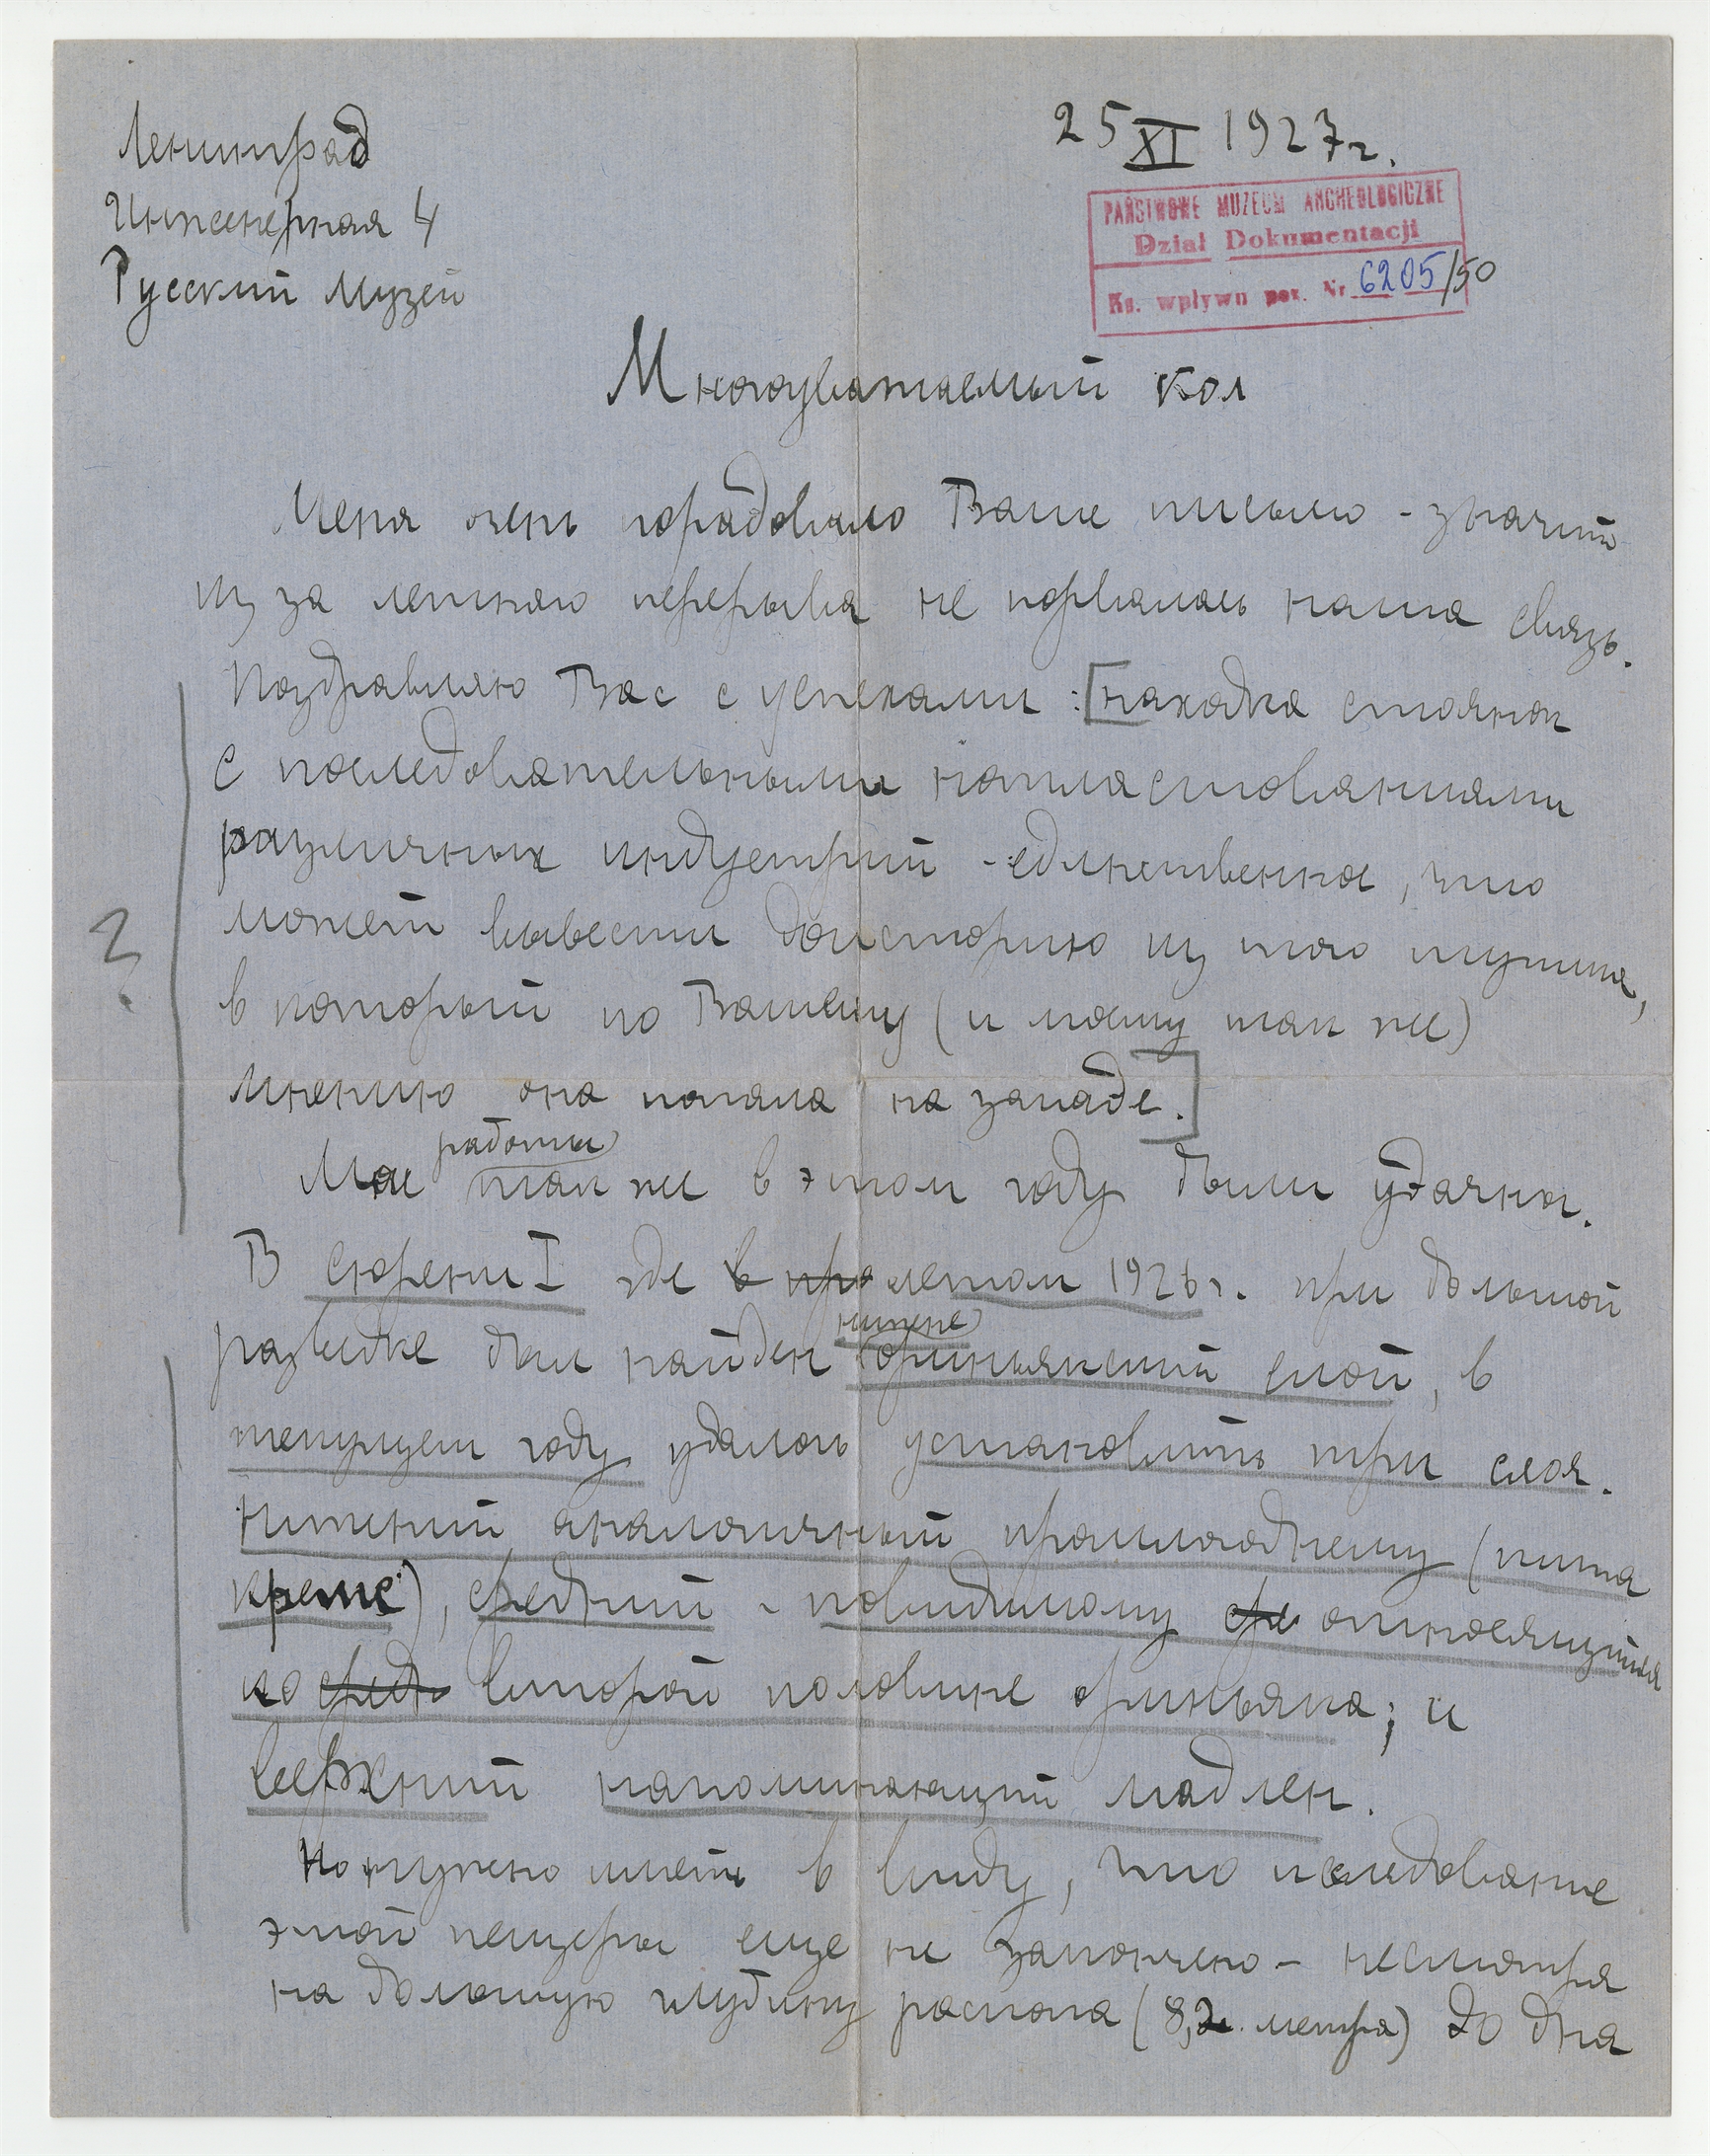 Ленинград
Инженерная 4
Русский Музей
25 XI 1927 г.
PAŃSTWOWE MUZEUM ARCHEOLOGICZNE
Dział Dokumentacji
Ks. wpływu poz. Nr 6205/50
Многоуважаемый кол
Меня очень порадовало Ваше письмо - значит
из за летняго перерыва не порвалась наша связь.
Поздравляю Вас с успехами : [находка стоянок
с последовательными напластованиями
различных индустрий - единственное, что
может вывести доисторию из того тупика,
в который по Вашему (и моему так же)
мнению она попала на западе.]
Мои работы так же в этом году были удачны.
В Сюрени I где в про летом 1926 г. при большой
разведке был найден ниже ориньякский слой, в
текущем году удалось установить три слоя.
Нижний аналогичный прошлогоднему (типа
Кремс), средний - повидимому сре относящийся
ко сред второй половине ориньяка; и
верхний напоминающий мадлен.
Но нужно иметь в виду, что исследование
этой пещеры еще не закончено - несмотря
на большую глубину раскопа (8,2 метра) до дна